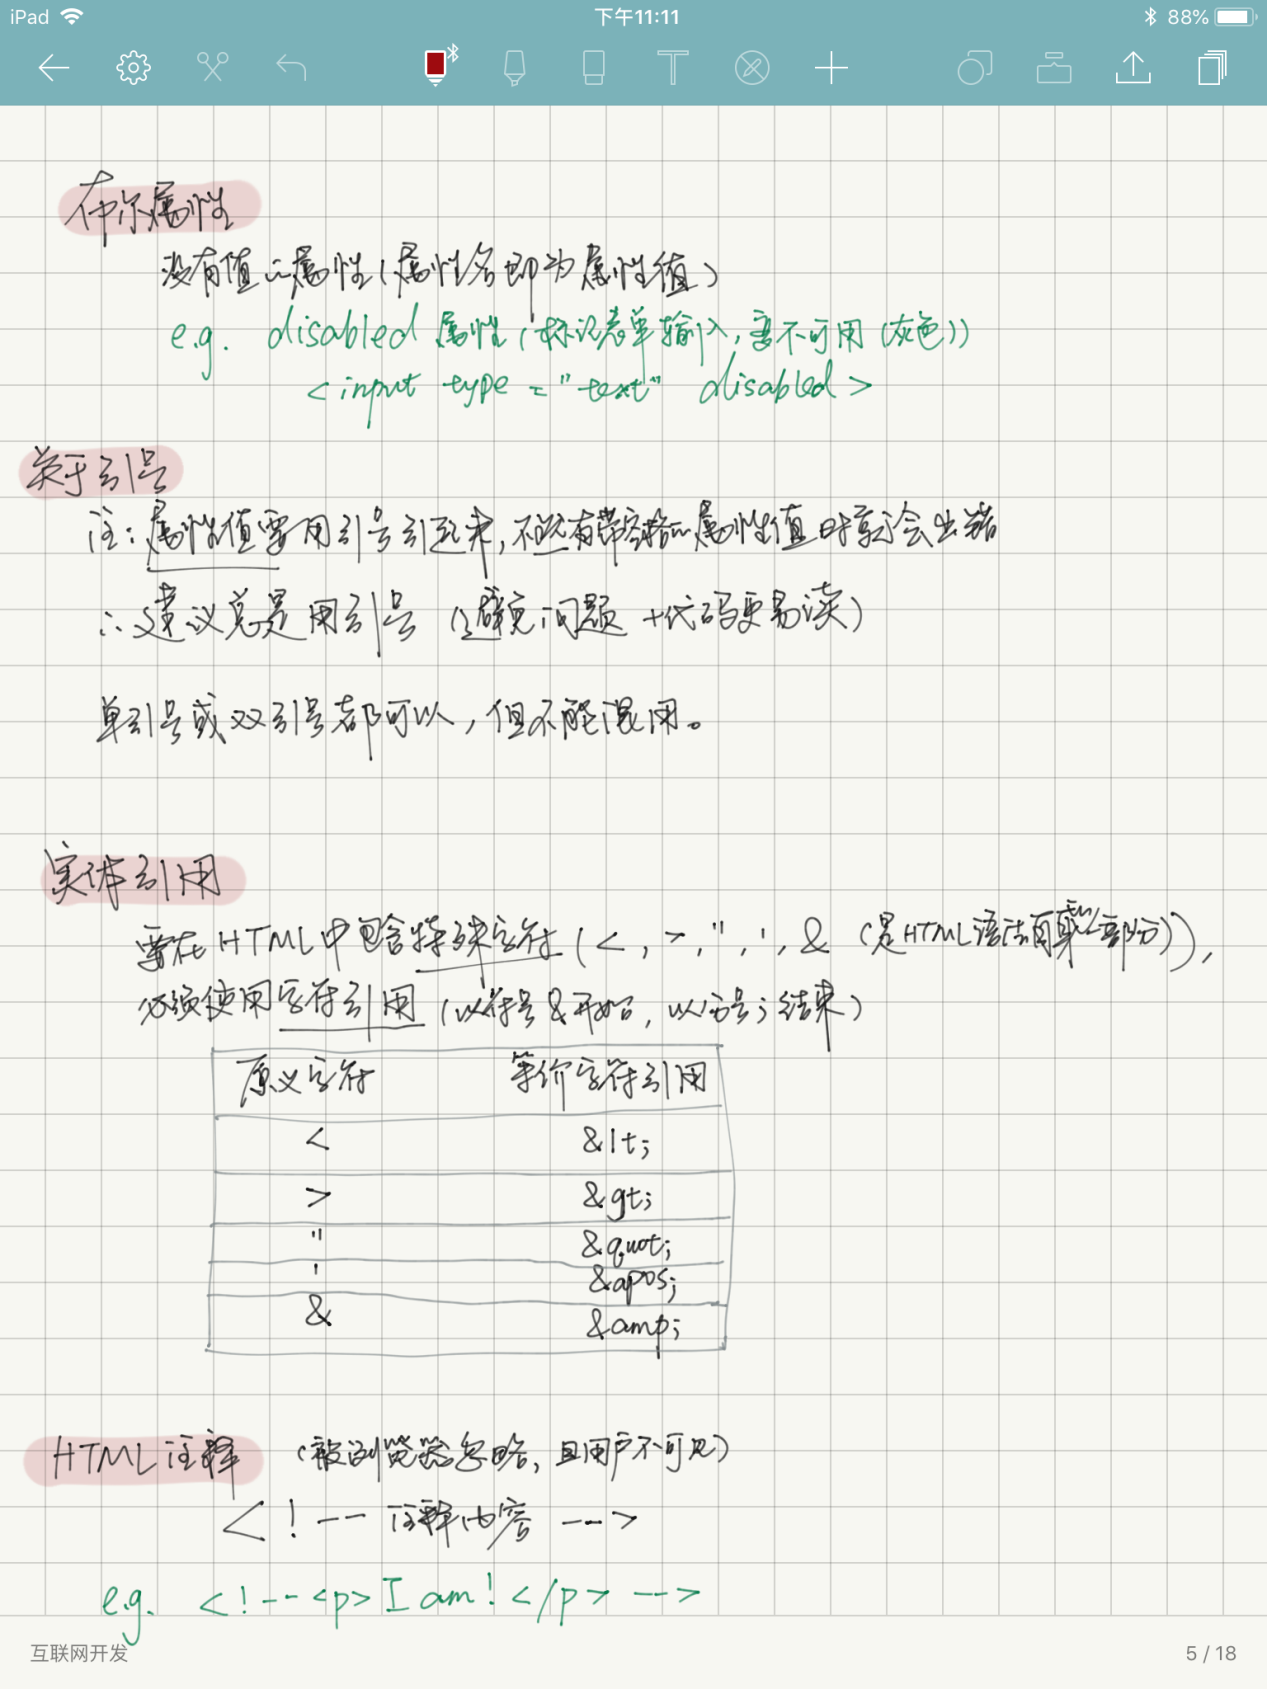 iPad 下午11:11 88%
布尔属性
没有值的属性(属性名即为属性值)
e.g. disabled 属性(标记表单输入,变不可用(灰色))
<input type="text" disabled>
关于引号
注:属性值要用引号引起来,不然有带空格的属性值时就会出错
∴建议总是用引号(避免问题+代码更易读)
单引号或双引号都可以,但不能混用。
实体引用
要在HTML中包含特殊字符(<,>,",',&(是HTML语法自身的一部分)),
必须使用字符引用(以符号&开始,以分号;结束)
原义字符 等价字符引用
< &lt;
> &gt;
" &quot;
' &apos;
& &amp;
HTML注释 (被浏览器忽略,且用户不可见)
<!-- 注释内容 -->
e.g. <!--<p>I am!</p> -->
互联网开发 5 / 18